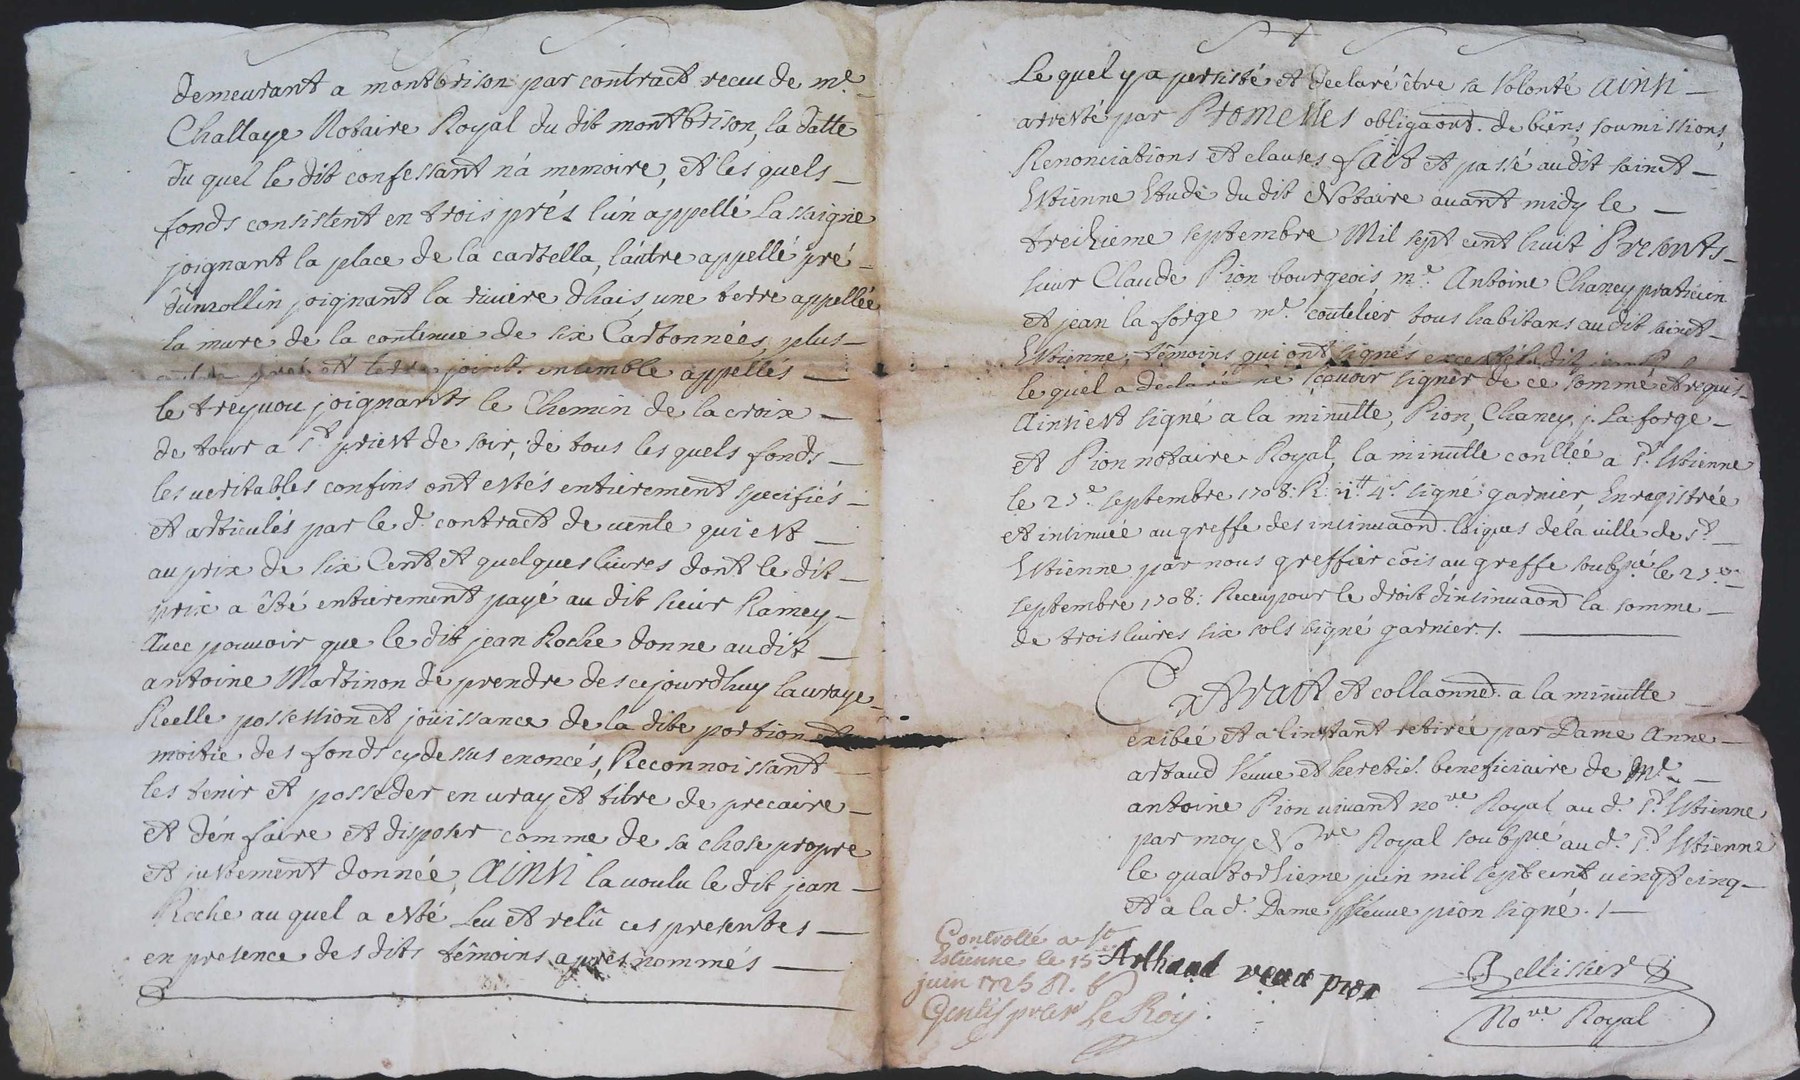 demeurant a montbrison par contract receu de me.
Challaye Notaire Royal du dit montbrison, la datte
du quel le dit confessant n'a memoire, et les quels
fonds consistent en trois prés l'un appellé La saigne
joignant la place de la cartella, l'autre appellé pré
joignant la riviere d'hais, une terre appellée
la mure de la contenue de six Cartonnées, plus
pré et terre joint ensemble appellés
le treyuou joignants le Chemin de la croix
de tour a St. priest de soir, de tous les quels fonds
les veritables confins ont estés entierement specifiés
et articulés par le d. contract de vente qui est
au prix de six Cent et quelques livres dont le dit
prix a été entierement payé au dit sieur Ramey
Avec pouvoir que le dit jean Roche donne audit
antoine Martinon de prendre des cejourdhuy la vraye
Reelle possession et joüissance de la dite portion et
moitie des fonds cydessus enoncés, Reconnoissant
les tenir et posseder en vray et titre de precaire
et d'en faire et disposer comme de sa chose propre
et justement donnée, Ainsi la voulu le dit jean
Roche au quel a esté Leu et relû ces presentes
en presence des dits témoins apres nommés
Le quel y a persisté et declaré être sa Volonté Ainsi
arresté par Promesses obligaond. de biens, soumissions,
Renonciations et clauses fait et passé audit sainct
Estienne Etude du dit Notaire avant midy le
treizieme septembre Mil sept cent huit Presents
sieur Claude Pion bourgeois, me. Antoine Chaney praticien
et jean la forge me. coutelier tous habitans audit sainct
Estienne, témoins qui ont signés excepté le dit
le quel a declaré ne sçavoir signer de ce sommé et requis
Ainsi est signé a la minutte, Pion, Chaney, j. La forge
et Pion notaire Royal, la minutte conllée a St. Estienne
le 25e septembre 1708: R: 4s. signé garnier, Enregistrée
et insinuée au greffe des insinuaond. laiques de la ville de St.
Estienne par nous greffier cõis au greffe soubsné le 25e
septembre 1708: Receu pour le droit d'insinuaond la somme
de trois livres six sols signé garnier. /.
Extrait et collaonné. a la minutte
exibée et a l'instant retirée par Dame Anne
artaud Veuve et heretie. beneficiaire de Me.
antoine Pion vivant nore Royal au d. St. Estienne
par moy Nore Royal soubsné au d. St Estienne
le quatorzieme juin mil sept cent vingt cinq
et a la d. Dame Veuve pion signé. /
Controllé a St.
Estienne le 15
juin 1725 R. 6
Le Roy.
Arthaud pion
Pellissier
Nore Royal